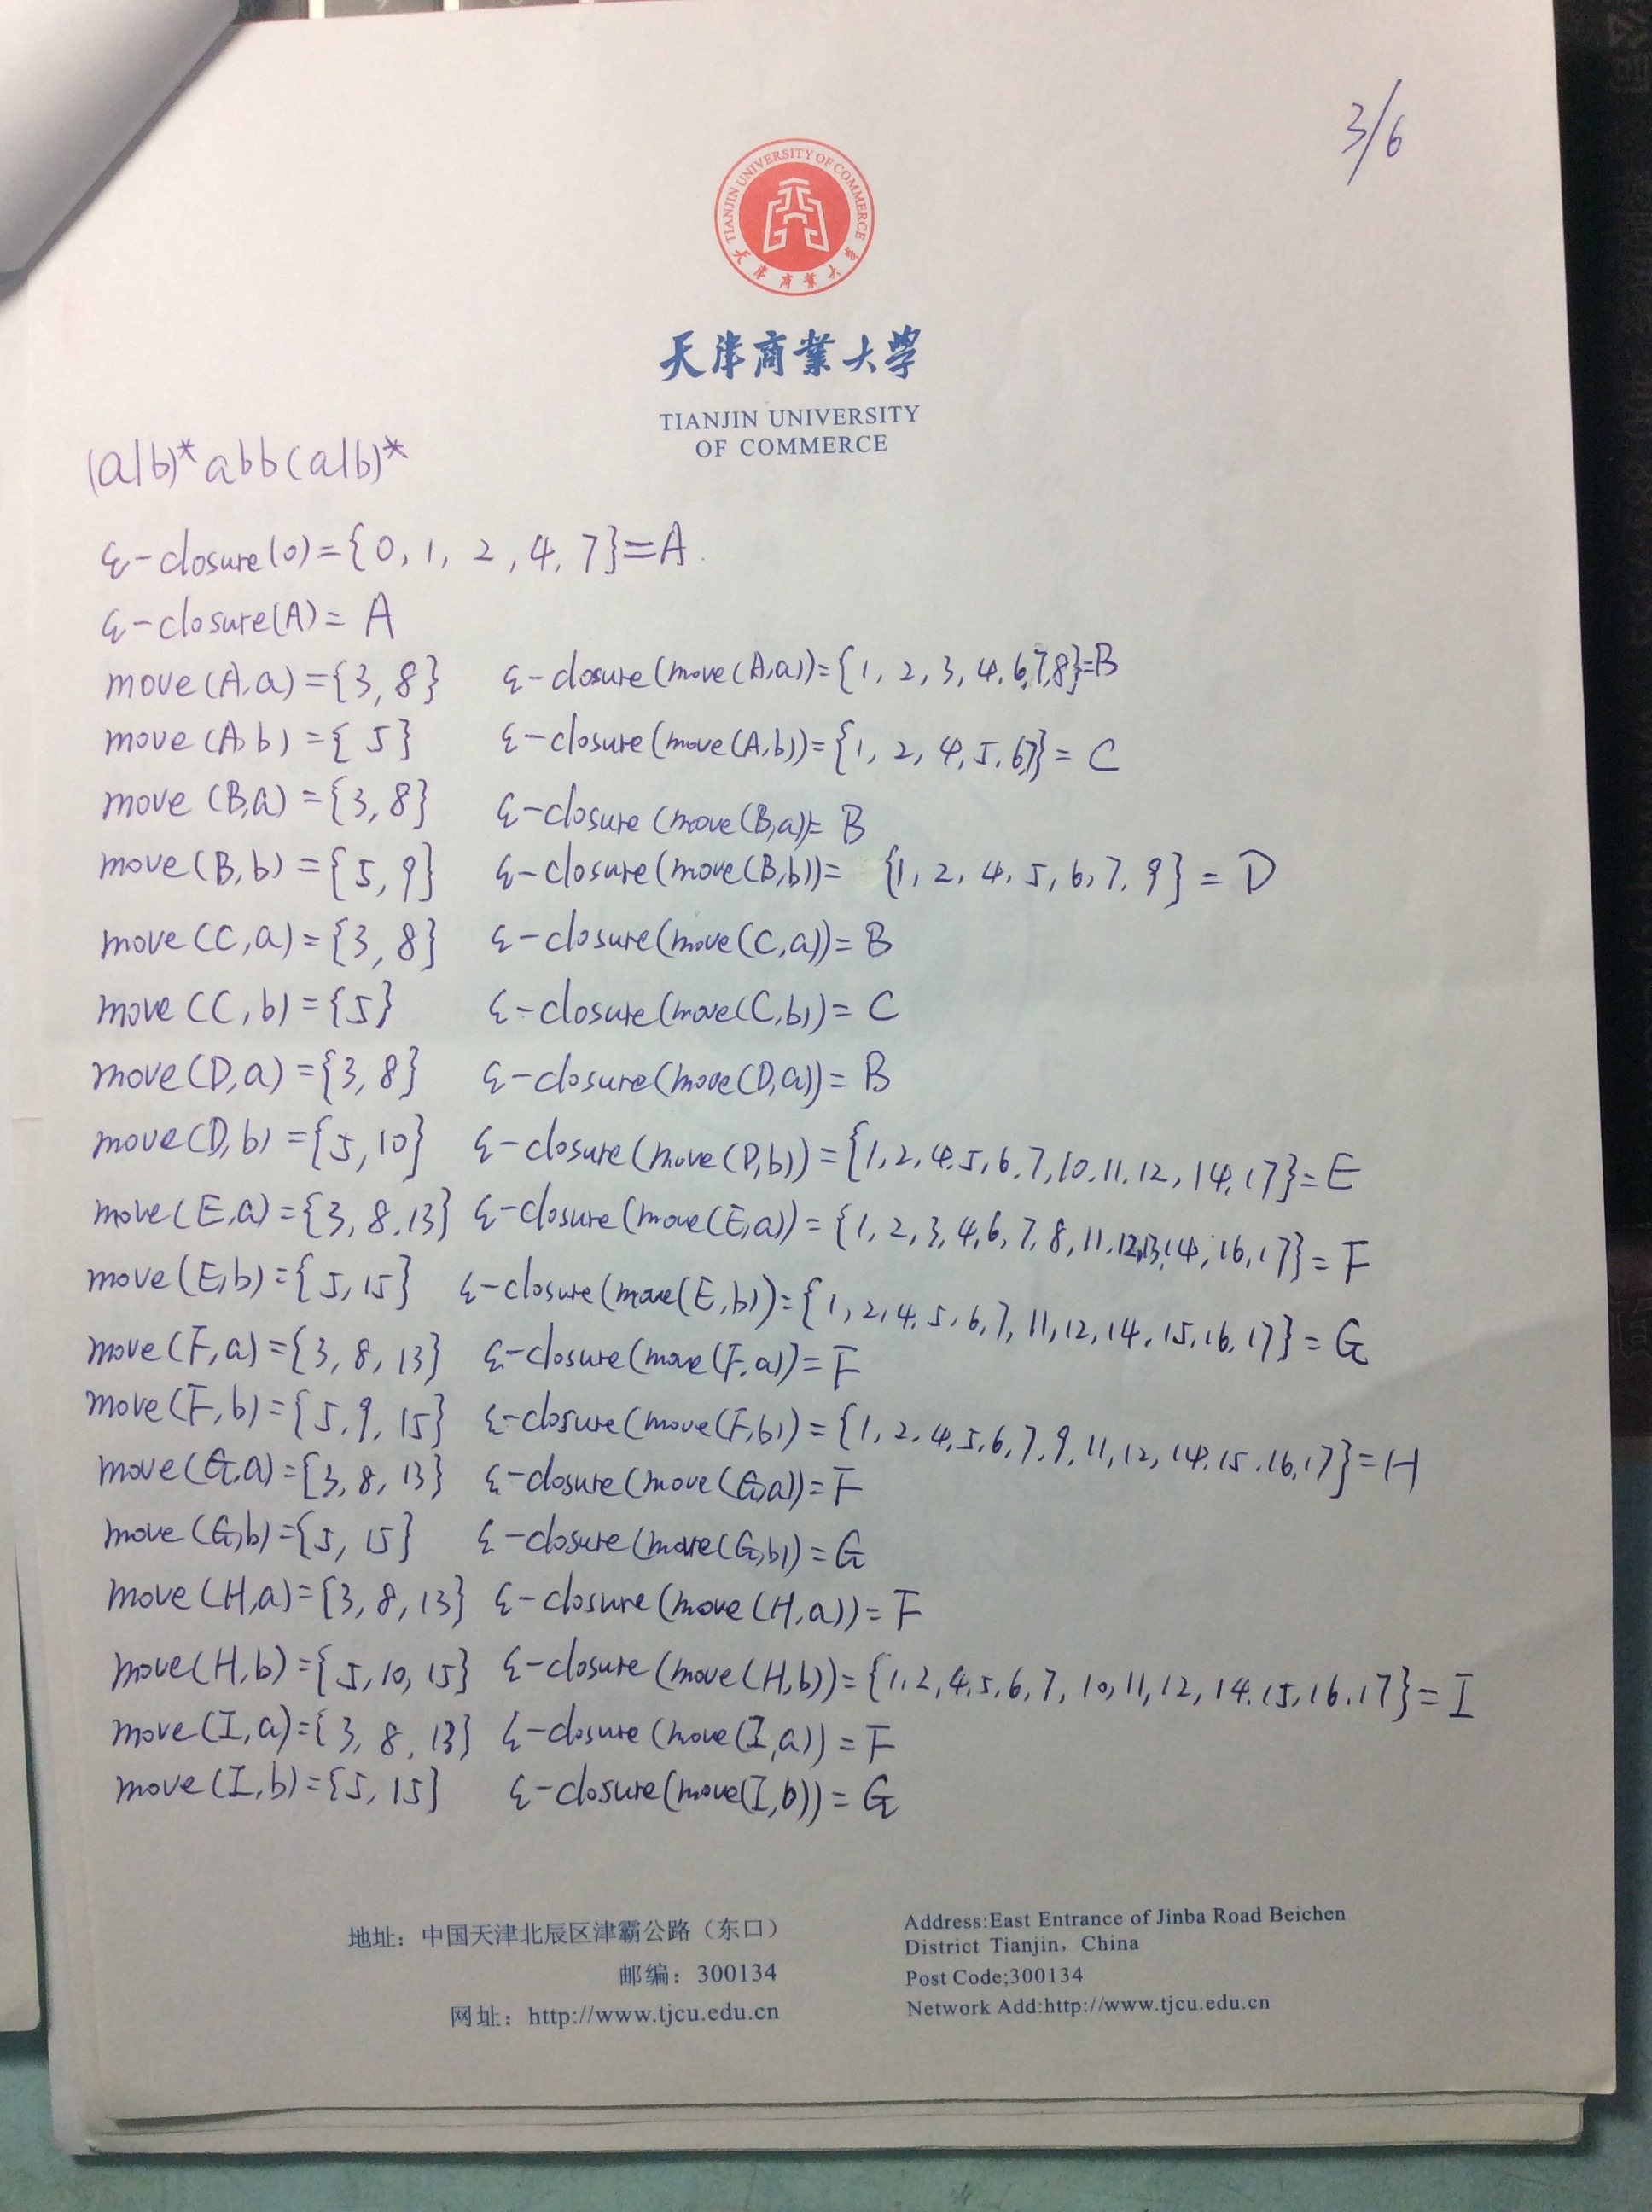 3/6
TIANJIN UNIVERSITY OF COMMERCE
天津商業大學
天津商業大學
TIANJIN UNIVERSITY
OF COMMERCE
(a|b)*abb(a|b)*
ε-closure(0)={0, 1, 2, 4, 7}=A.
ε-closure(A)= A
move(A,a)={3, 8} ε-closure(move(A,a))={1, 2, 3, 4, 6,7,8}=B
move(A,b)={ 5} ε-closure(move(A,b))={1, 2, 4, 5, 6,7}= C
move(B,a)={3, 8} ε-closure(move(B,a))= B
move(B,b)={5, 9} ε-closure(move(B,b))= {1, 2, 4, 5, 6, 7, 9} = D
move(C,a)={3, 8} ε-closure(move(C,a))= B
move(C,b)={5} ε-closure(move(C,b))= C
move(D,a)={3, 8} ε-closure(move(D,a))= B
move(D,b)={5, 10} ε-closure(move(D,b))={1, 2, 4, 5, 6, 7, 10, 11, 12, 14, 17}=E
move(E,a)={3, 8, 13} ε-closure(move(E,a))={1, 2, 3, 4, 6, 7, 8, 11, 12, 13, 14, 16, 17}=F
move(E,b)={5, 15} ε-closure(move(E,b))={1, 2, 4, 5, 6, 7, 11, 12, 14, 15, 16, 17}=G
move(F,a)={3, 8, 13} ε-closure(move(F,a))=F
move(F,b)={5, 9, 15} ε-closure(move(F,b))={1, 2, 4, 5, 6, 7, 9, 11, 12, 14, 15, 16, 17}=H
move(G,a)={3, 8, 13} ε-closure(move(G,a))=F
move(G,b)={5, 15} ε-closure(move(G,b))=G
move(H,a)={3, 8, 13} ε-closure(move(H,a))=F
move(H,b)={5, 10, 15} ε-closure(move(H,b))={1, 2, 4, 5, 6, 7, 10, 11, 12, 14, 15, 16, 17}=I
move(I,a)={3, 8, 13} ε-closure(move(I,a))=F
move(I,b)={5, 15} ε-closure(move(I,b))=G
地址：中国天津北辰区津霸公路（东口）
邮编：300134
网址：http://www.tjcu.edu.cn
Address:East Entrance of Jinba Road Beichen
District Tianjin，China
Post Code;300134
Network Add:http://www.tjcu.edu.cn